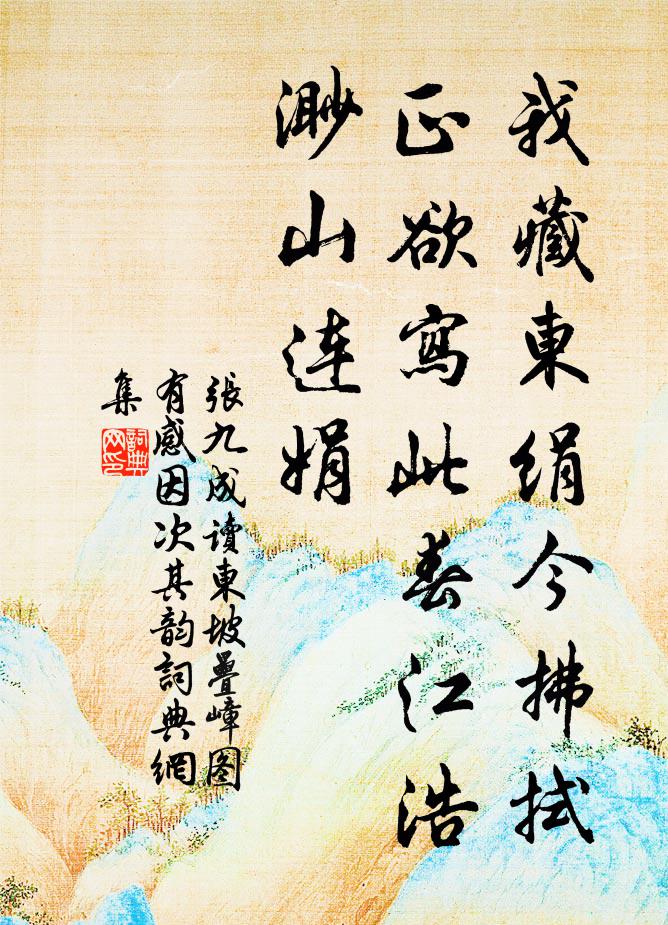 我藏東絹今拂拭
正欲寫此春江浩
渺山連娟
張九成讀東坡疊嶂图
有感因次其韵詞典網
集
詞典网印